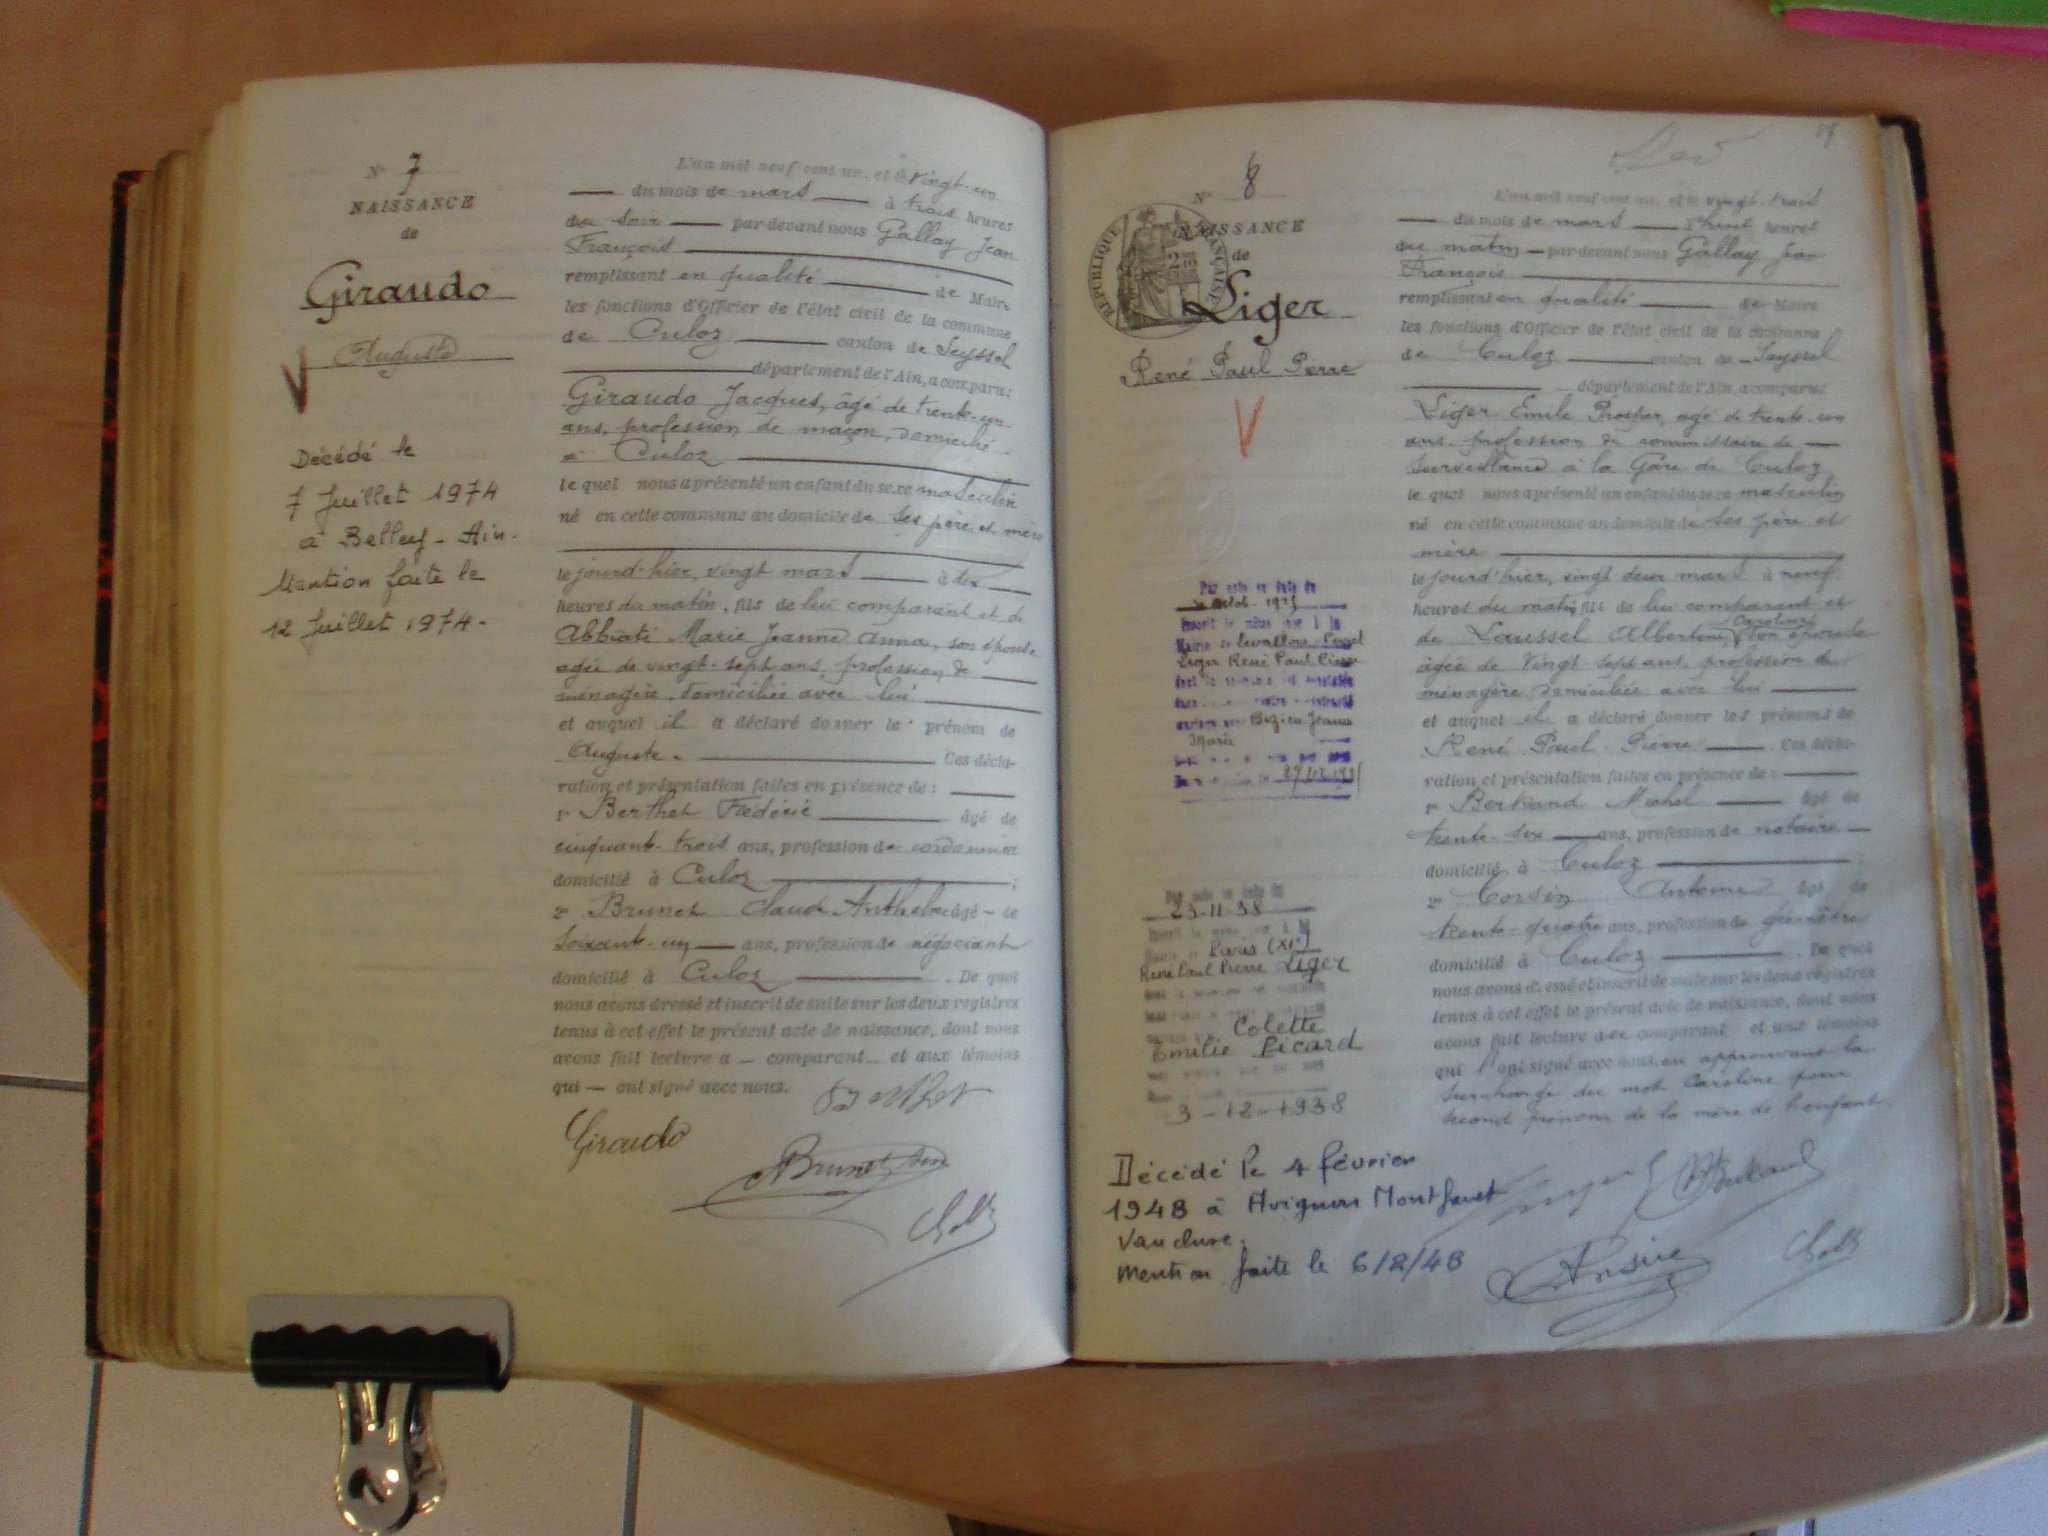 N° 7
NAISSANCE
de
Giraudo
Auguste
Décédé le
7 Juillet 1974
à Belley - Ain.
Mention faite le
12 Juillet 1974.
L'an mil neuf cent un, et le vingt-un
du mois de mars à trois heures
du soir par-devant nous Gallay Jean
François
remplissant en qualité de Maire
les fonctions d'Officier de l'état civil de la commune
de Culoz canton de Seyssel
département de l'Ain, a comparu:
Giraudo Jacques, âgé de trente-un
ans, profession de maçon, domicilié
à Culoz
lequel nous a présenté un enfant du sexe masculin
né en cette commune au domicile de ses père et mère
le jourd'hier, vingt mars à dix
heures du matin, fils de lui comparant et de
Abbiati Marie Jeanne Anna, son épouse
agée de vingt-sept ans, profession de
ménagère, domiciliée avec lui
et auquel il a déclaré donner le prénom de
Auguste. Ces décla-
ration et présentation faites en présence de:
1° Berthet Frédéric âgé de
cinquante-trois ans, profession de cordonnier
domicilié à Culoz ;
2° Brunet Claude Anthelme âgé de
soixante-un ans, profession de négociant
domicilié à Culoz . De quoi
nous avons dressé et inscrit de suite sur les deux registres
tenus à cet effet le présent acte de naissance, dont nous
avons fait lecture a comparant et aux témoins
qui ont signé avec nous.
Berthet
Giraudo
Brunet
N° 8
RÉPUBLIQUE FRANÇAISE
NAISSANCE
de
Liger
René Paul Pierre
Par acte en date du
1925
Inscrit le même jour à la
Mairie de Levallois-Perret
Liger René Paul Pierre
Bezieu Jeanne
Marie
Par acte en date du
23-11-38
Paris (XIe)
René Paul Pierre Liger
Colette
Emilie Picard
3-12-1938
Décédé le 4 février
1948 à Avignon Montfavet
Vaucluse.
Mention faite le 6/2/48
L'an mil neuf cent un, et le vingt-trois
du mois de mars à huit heures
du matin par-devant nous Gallay Jean
François
remplissant en qualité de Maire
les fonctions d'Officier de l'état civil de la commune
de Culoz canton de Seyssel
département de l'Ain, a comparu:
Liger Emile Prosper, agé de trente-un
ans, profession de commissaire de
surveillance à la Gare de Culoz
lequel nous a présenté un enfant du sexe masculin
né en cette commune au domicile de ses père et
mère
le jourd'hier, vingt deux mars à neuf
heures du matin, fils de lui comparant et
de Laussel Albertine, Caroline son épouse
agée de vingt-sept ans, profession de
ménagère domiciliée avec lui
et auquel il a déclaré donner les prénoms de
René Paul-Pierre . Ces décla-
ration et présentation faites en présence de:
1° Bertrand Michel âgé de
trente-six ans, profession de notaire
domicilié à Culoz ;
2° Corsin Antoine âgé de
trente-quatre ans, profession de géomètre
domicilié à Culoz . De quoi
nous avons dressé et inscrit de suite sur les deux registres
tenus à cet effet le présent acte de naissance, dont nous
avons fait lecture au comparant et aux témoins
qui l'ont signé avec nous, en approuvant la
surcharge du mot Caroline pour
second prénom de la mère de l'enfant